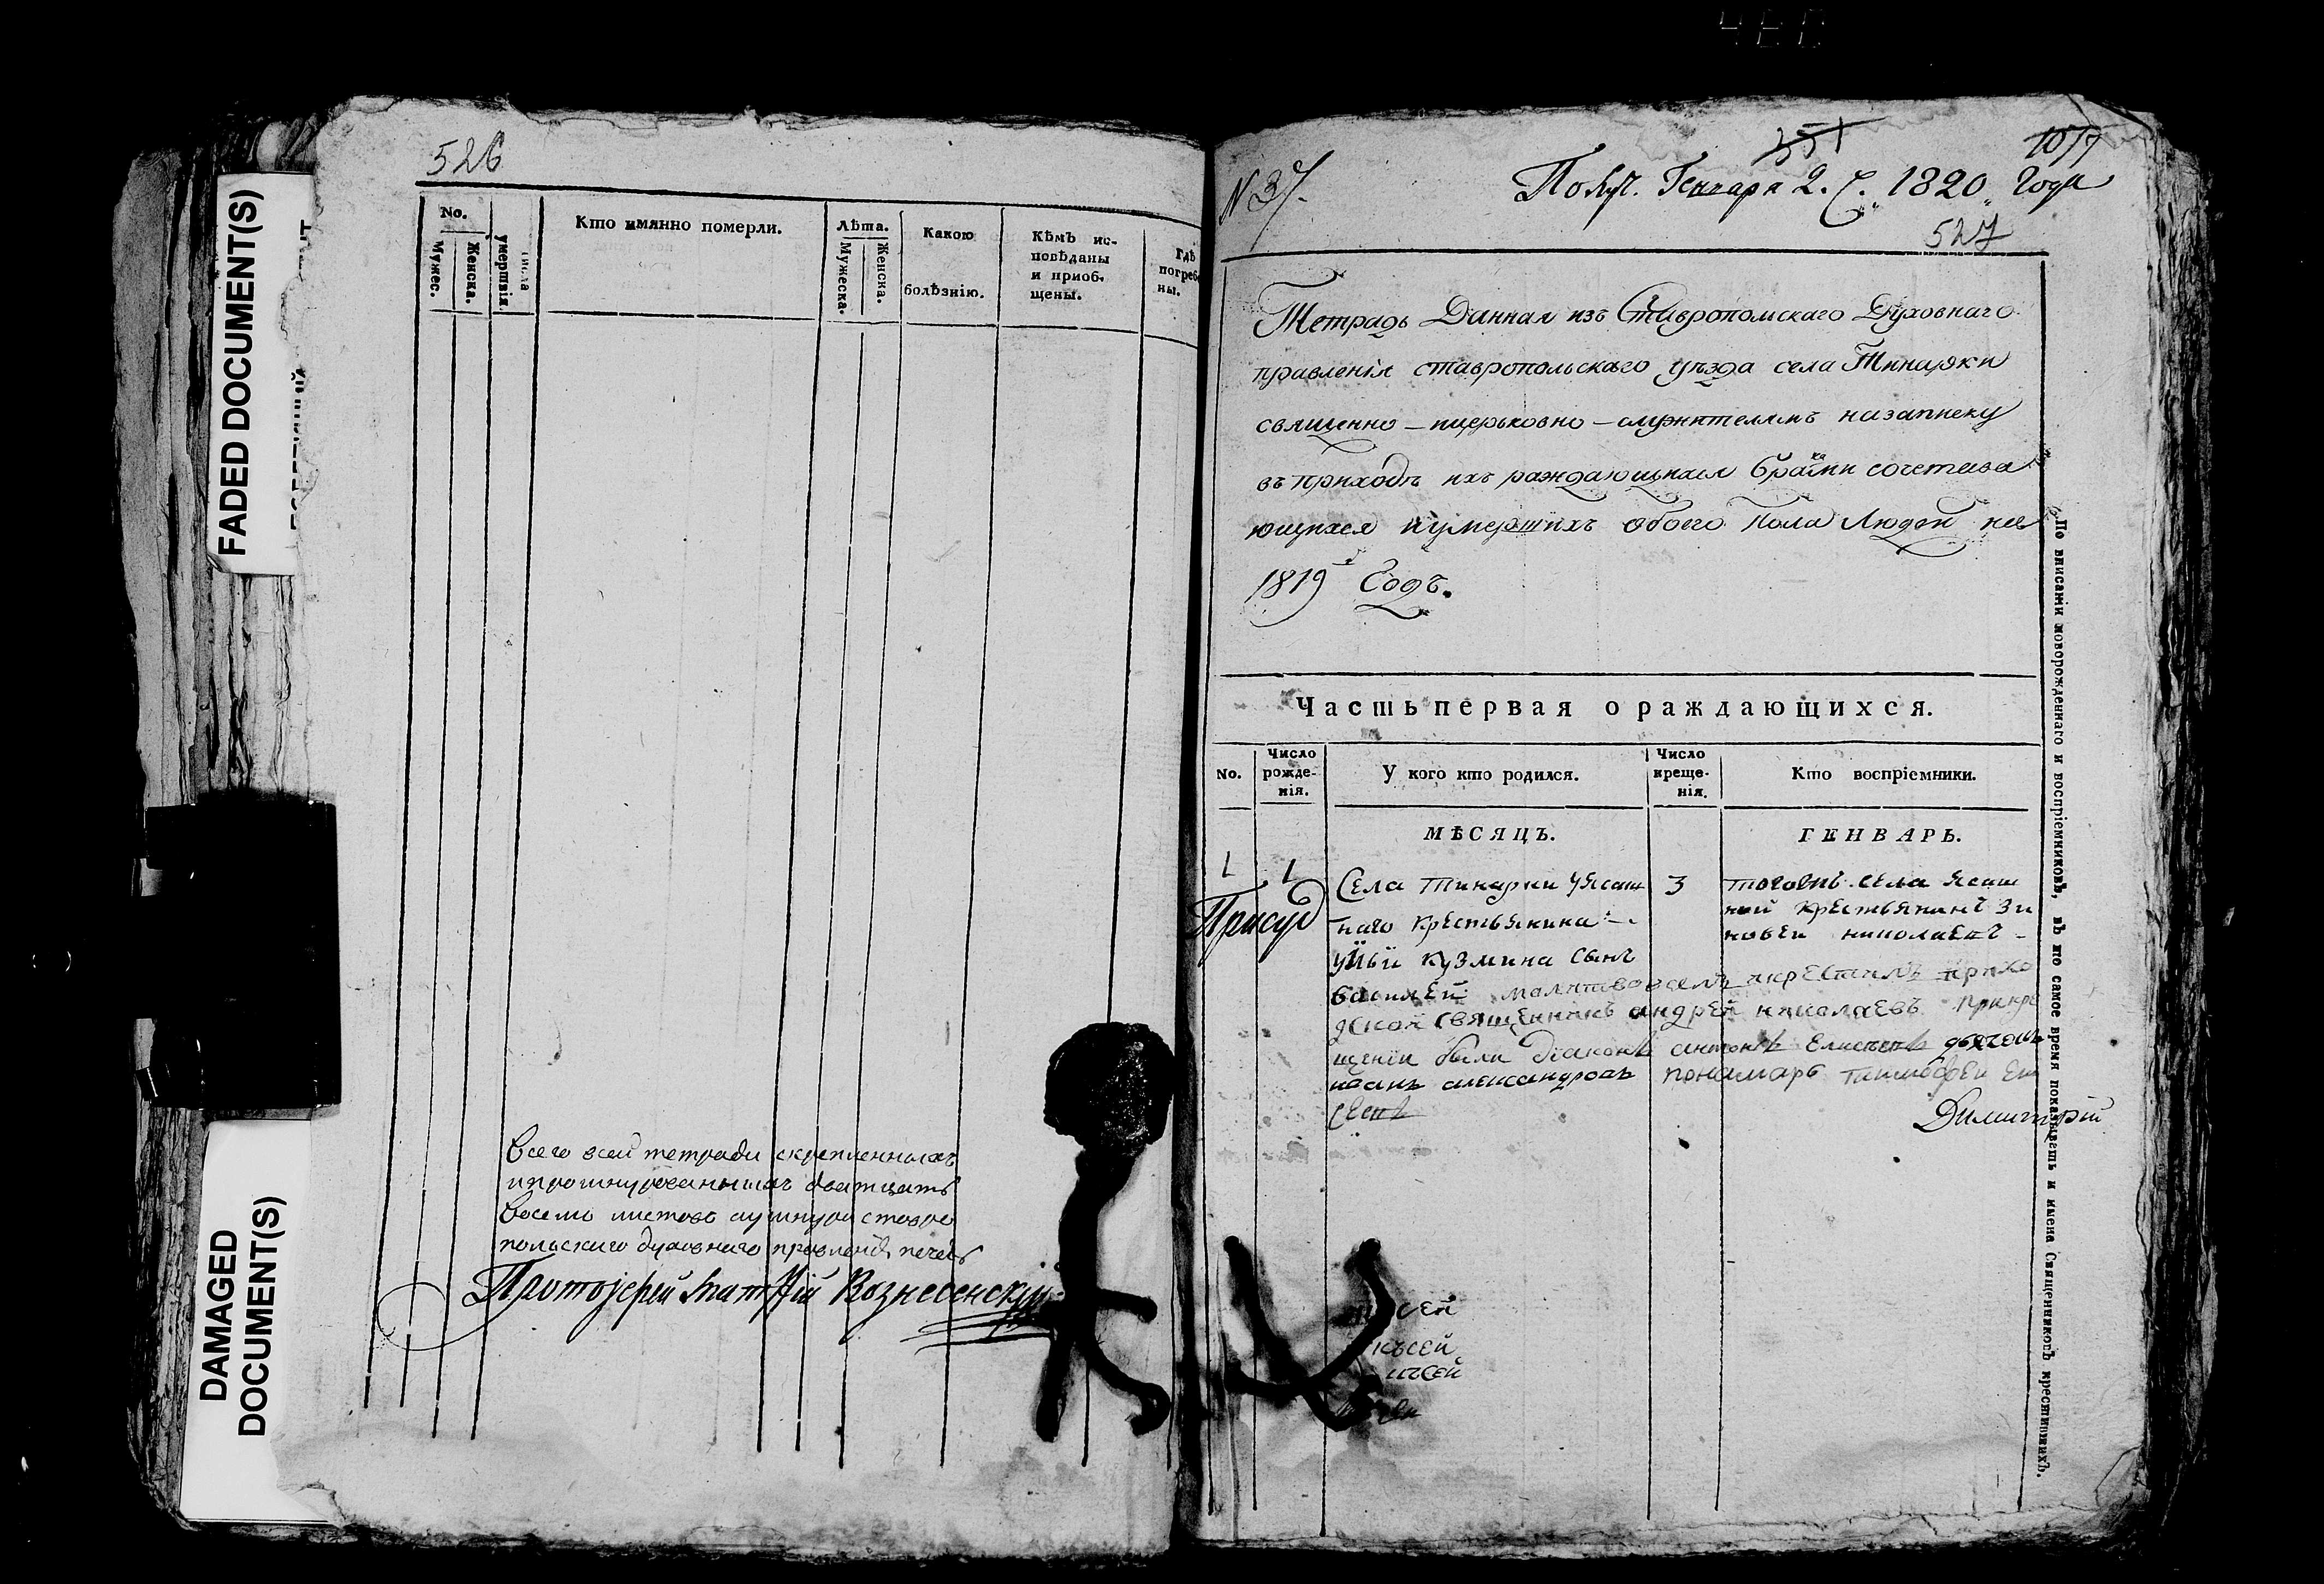 FADED DOCUMENT(S)
DAMAGED
DOCUMENT(S)
526
No.
Мужес.
Женска.
числа
умершвія.
Кто имянно померли.
Лѣта.
Мужеска.
Женска.
Какою
болѣзнію.
Кѣмъ ис-
повѣданы
и приоб-
щены.
Гдѣ
погребе
ны.
всего всей тетради скрепленныхъ
и прошнурованныхъ дватцать
восемь листовъ
польскаго духовнаго правленія печать
Протоіерей Вознесенскій
N 37.
351
1077
Получ. Генваря 2. 1820 Года
527
Тетрадь Данная изъ Ставропольскаго Духовнаго
правленія ставропольскаго уѣзда села Тинарки
священно-ицерьковно-служителямъ назаписку
въ приходѣ ихъ раждающихся браками сочетава
ющихся иумершихъ обоего пола Людей на
1819 Годъ.
Часть первая о раждающихся.
No.
Число
рожде-
нія.
У кого кто родился.
Число
креще-
нія.
Кто воспріемники.
МѢСЯЦЪ.
ГЕНВАРЬ.
1 1 Села тинарки уясаш 3 тогожъ села ясаш
наго крестьянина ной крестьянинъ зи
кузмина сынъ новеи николаевъ
василей молитвовалъ икрестилъ прихо
дской священникъ андрей николаевъ прикре
щеніи были діаконъ антонъ дьячокъ
иванъ александровъ понамарь тимофеи
Димитрій
По вписаніи новорожденнаго и воспріемниковъ, въ то самое время показывать и имена Священниковъ крестившихъ.